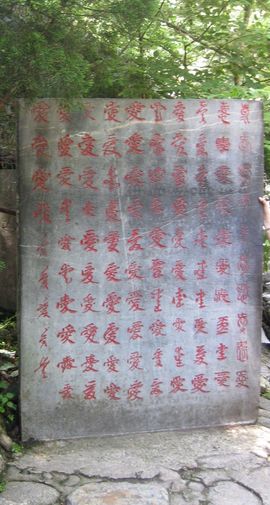 愛愛愛愛愛愛愛愛愛愛
愛愛愛愛愛愛愛愛愛愛
愛愛愛愛愛愛愛愛愛愛
愛愛愛愛愛愛愛愛愛愛
愛愛愛愛愛愛愛愛愛愛
愛愛愛愛愛愛愛愛愛愛
愛愛愛愛愛愛愛愛愛愛
愛愛愛愛愛愛愛愛愛愛
愛愛愛愛愛愛愛愛愛愛
愛愛愛愛愛愛愛愛愛愛